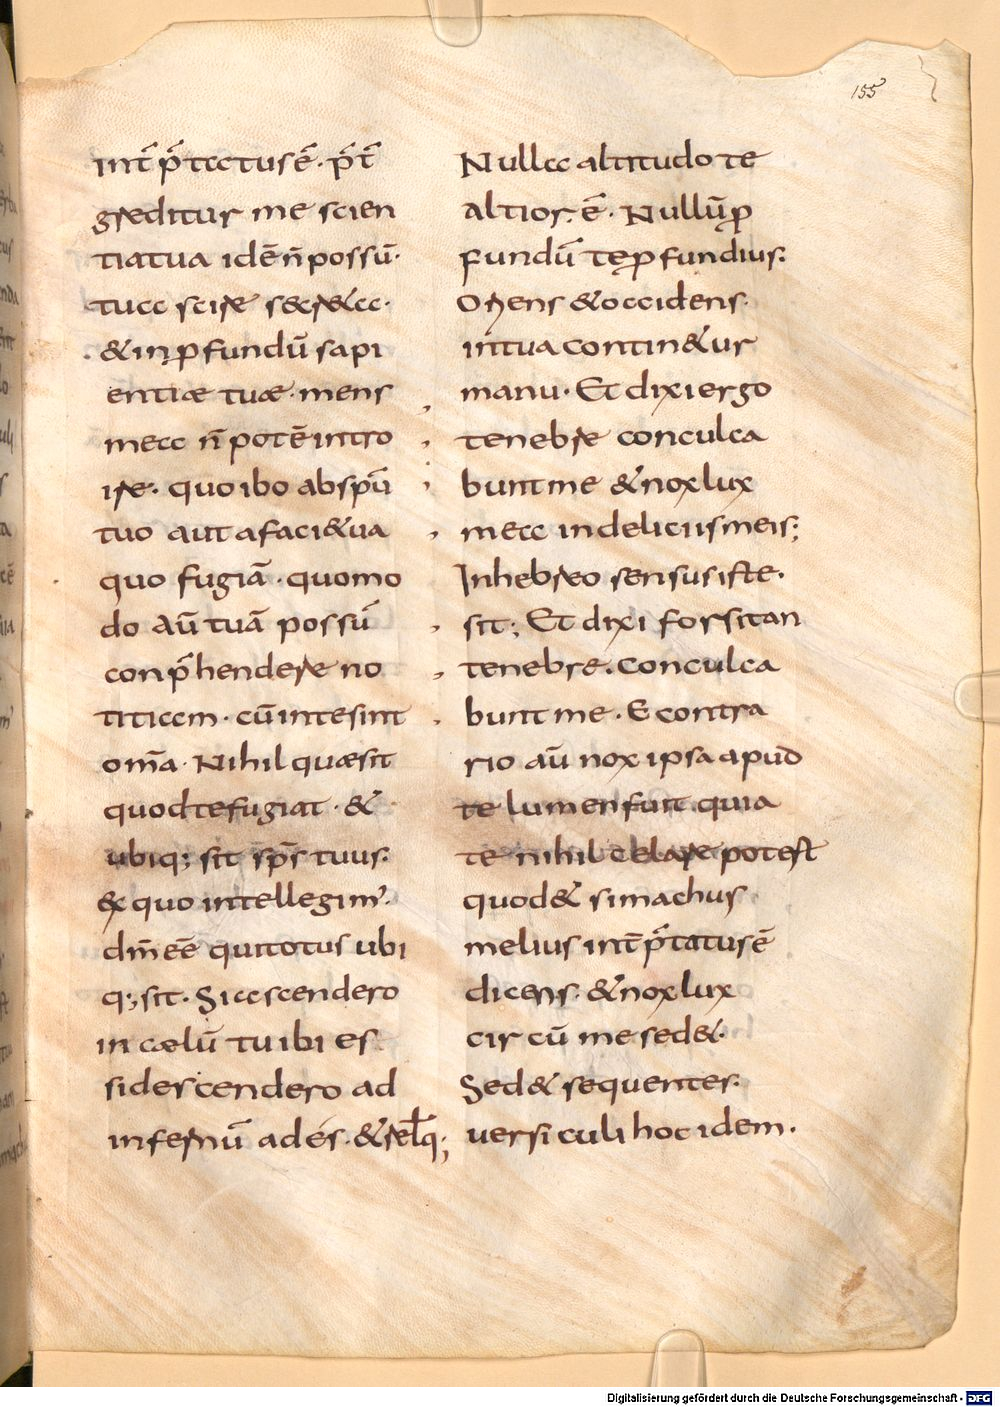 155
int̄ p̄tatus ē · p̄t̄
greditur me scien
tia tua id ē n̄ possū·
tua scire secreta·
& in profundū sapi
entiæ tuæ · mens
mea n̄ potē intro
ire· quo ibo ab sp̄u
tuo aut a facie tua
quo fugiā · quomo
do aū tuā possū
conp̄hendere no
titiam · cū inte sint
om̄a · Nihil quæ sit
quod te fugiat · &
ubiq; sit sp̄s tuus·
ex quo intellegim'·
dm̄ eē qui totus ubi
q; sit · Si ascendero
in cælū tu ibi es
si descendero ad
infernū ades · & reł q;
Nulla altitudo te
altior ē · Nullū pro
fundū te profundius:
Oriens & occidens·
in tua contin&ur
manu · Et dixi ergo
tenebre conculca
bunt me & nox lux
mea in deliciis meis;
In hebreo sensus iste·
sit; Et dixi forsitan
tenebre · conculca
bunt me · E contra
rio aū nox ipsa apud
te lumen fuit quia
te nihil celare potest
quod & simachus
melius int̄p̄tatus ē
dicens · & nox lux
circū me sed &·
Sed & sequentes·
uersiculi hoc idem·
Digitalisierung gefördert durch die Deutsche Forschungsgemeinschaft - DFG